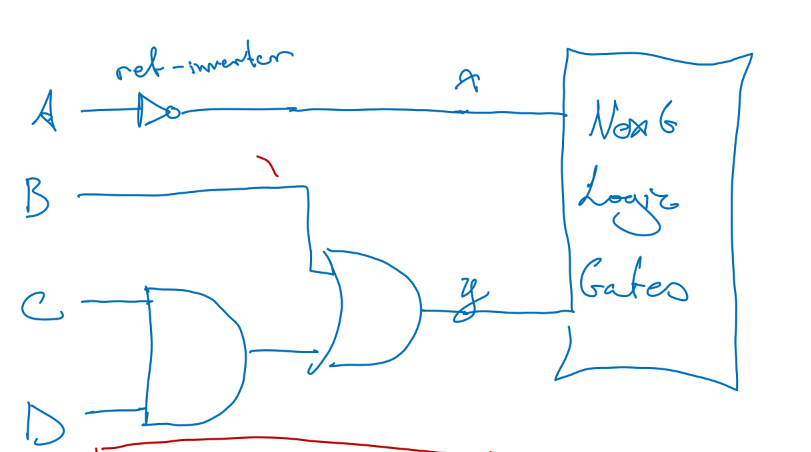 ref-inverter
A
B
C
D
y
Logic
Gates